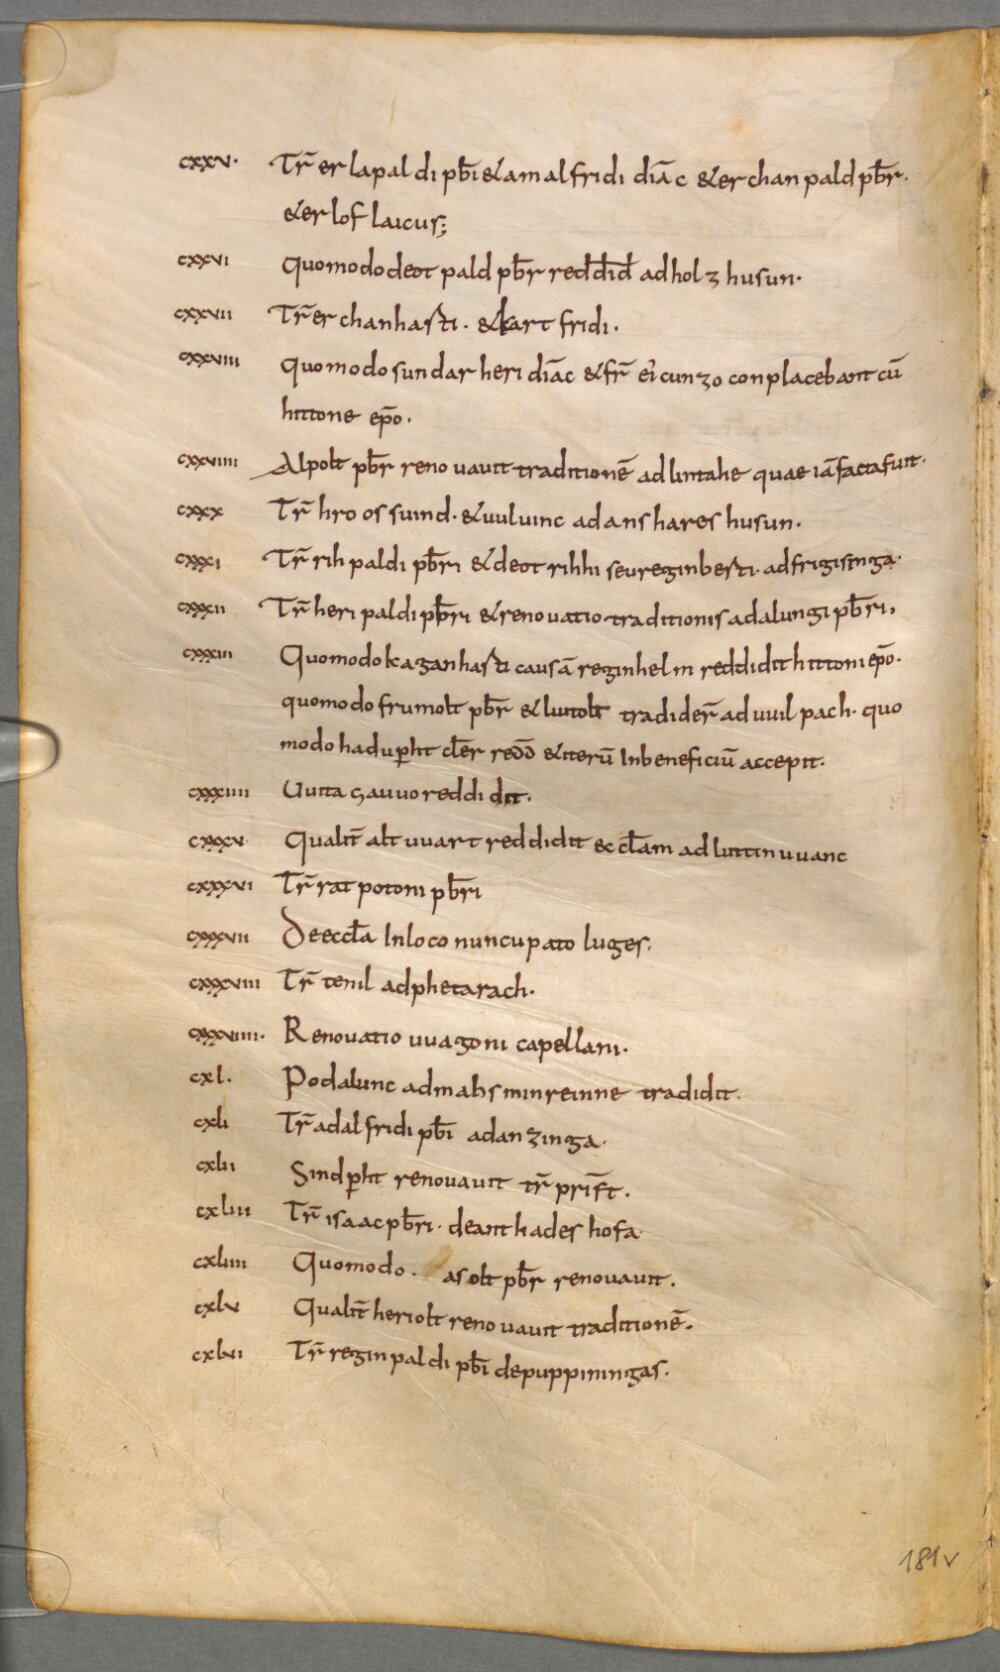 cxxv. Tr̄ erlapaldi pb̄i & amalfridi diāc & erchanpald pb̄r.
& erlof laicus;
cxxvi quomodo deotpald pb̄r redd̄id̄ ad holzhusun.
cxxvii Tr̄ erchanhasti. & kartfridi.
cxxviii quomodo sundarheri diāc & fr̄ ei cunzo conplacebant cū
hittone ep̄o.
cxxviiii Alpolt pb̄r renovavit traditionē ad lintahe quae iā facta fuit.
cxxx Tr̄ hroossuind. & uuluinc ad anshareshusun.
cxxxi Tr̄ rihpaldi pb̄ri & deotrihhi seu reginbesti. ad frigisinga.
cxxxii Tr̄ heripaldi pb̄ri & renovatio traditionis adalungi pb̄ri,
cxxxiii Quomodo kaganhasti causā reginhelm reddidit hittoni ep̄o.
quomodo frumolt pb̄r & liutolt tradider̄ ad uuilpach. quo
modo haduperht cl̄er redd̄ & iterū In beneficiū accepit.
cxxxiiii Uuitta gauuo reddidit.
cxxxv Qualit̄ altuuart reddidit eccl̄am ad liutinuuanc
cxxxvi Tr̄ ratpotoni pb̄ri
cxxxvii De eccl̄a In loco nuncupato luges.
cxxxviii Tr̄ tenil ad phetarach.
cxxxviiii. Renovatio uuagoni capellani.
cxl. Podalunc ad mahsminreinne tradidit.
cxli Tr̄ adalfridi pb̄i ad anzinga.
cxlii Sindperht renovavit tr̄ prist̄.
cxliii Tr̄ isaac pb̄ri. de anthadeshofa
cxliiii Quomodo. asolt pb̄r renovavit.
cxlv Qualit̄ heriolt renovavit traditionē.
cxlvi Tr̄ reginpaldi pb̄i de puppiningas.
181v